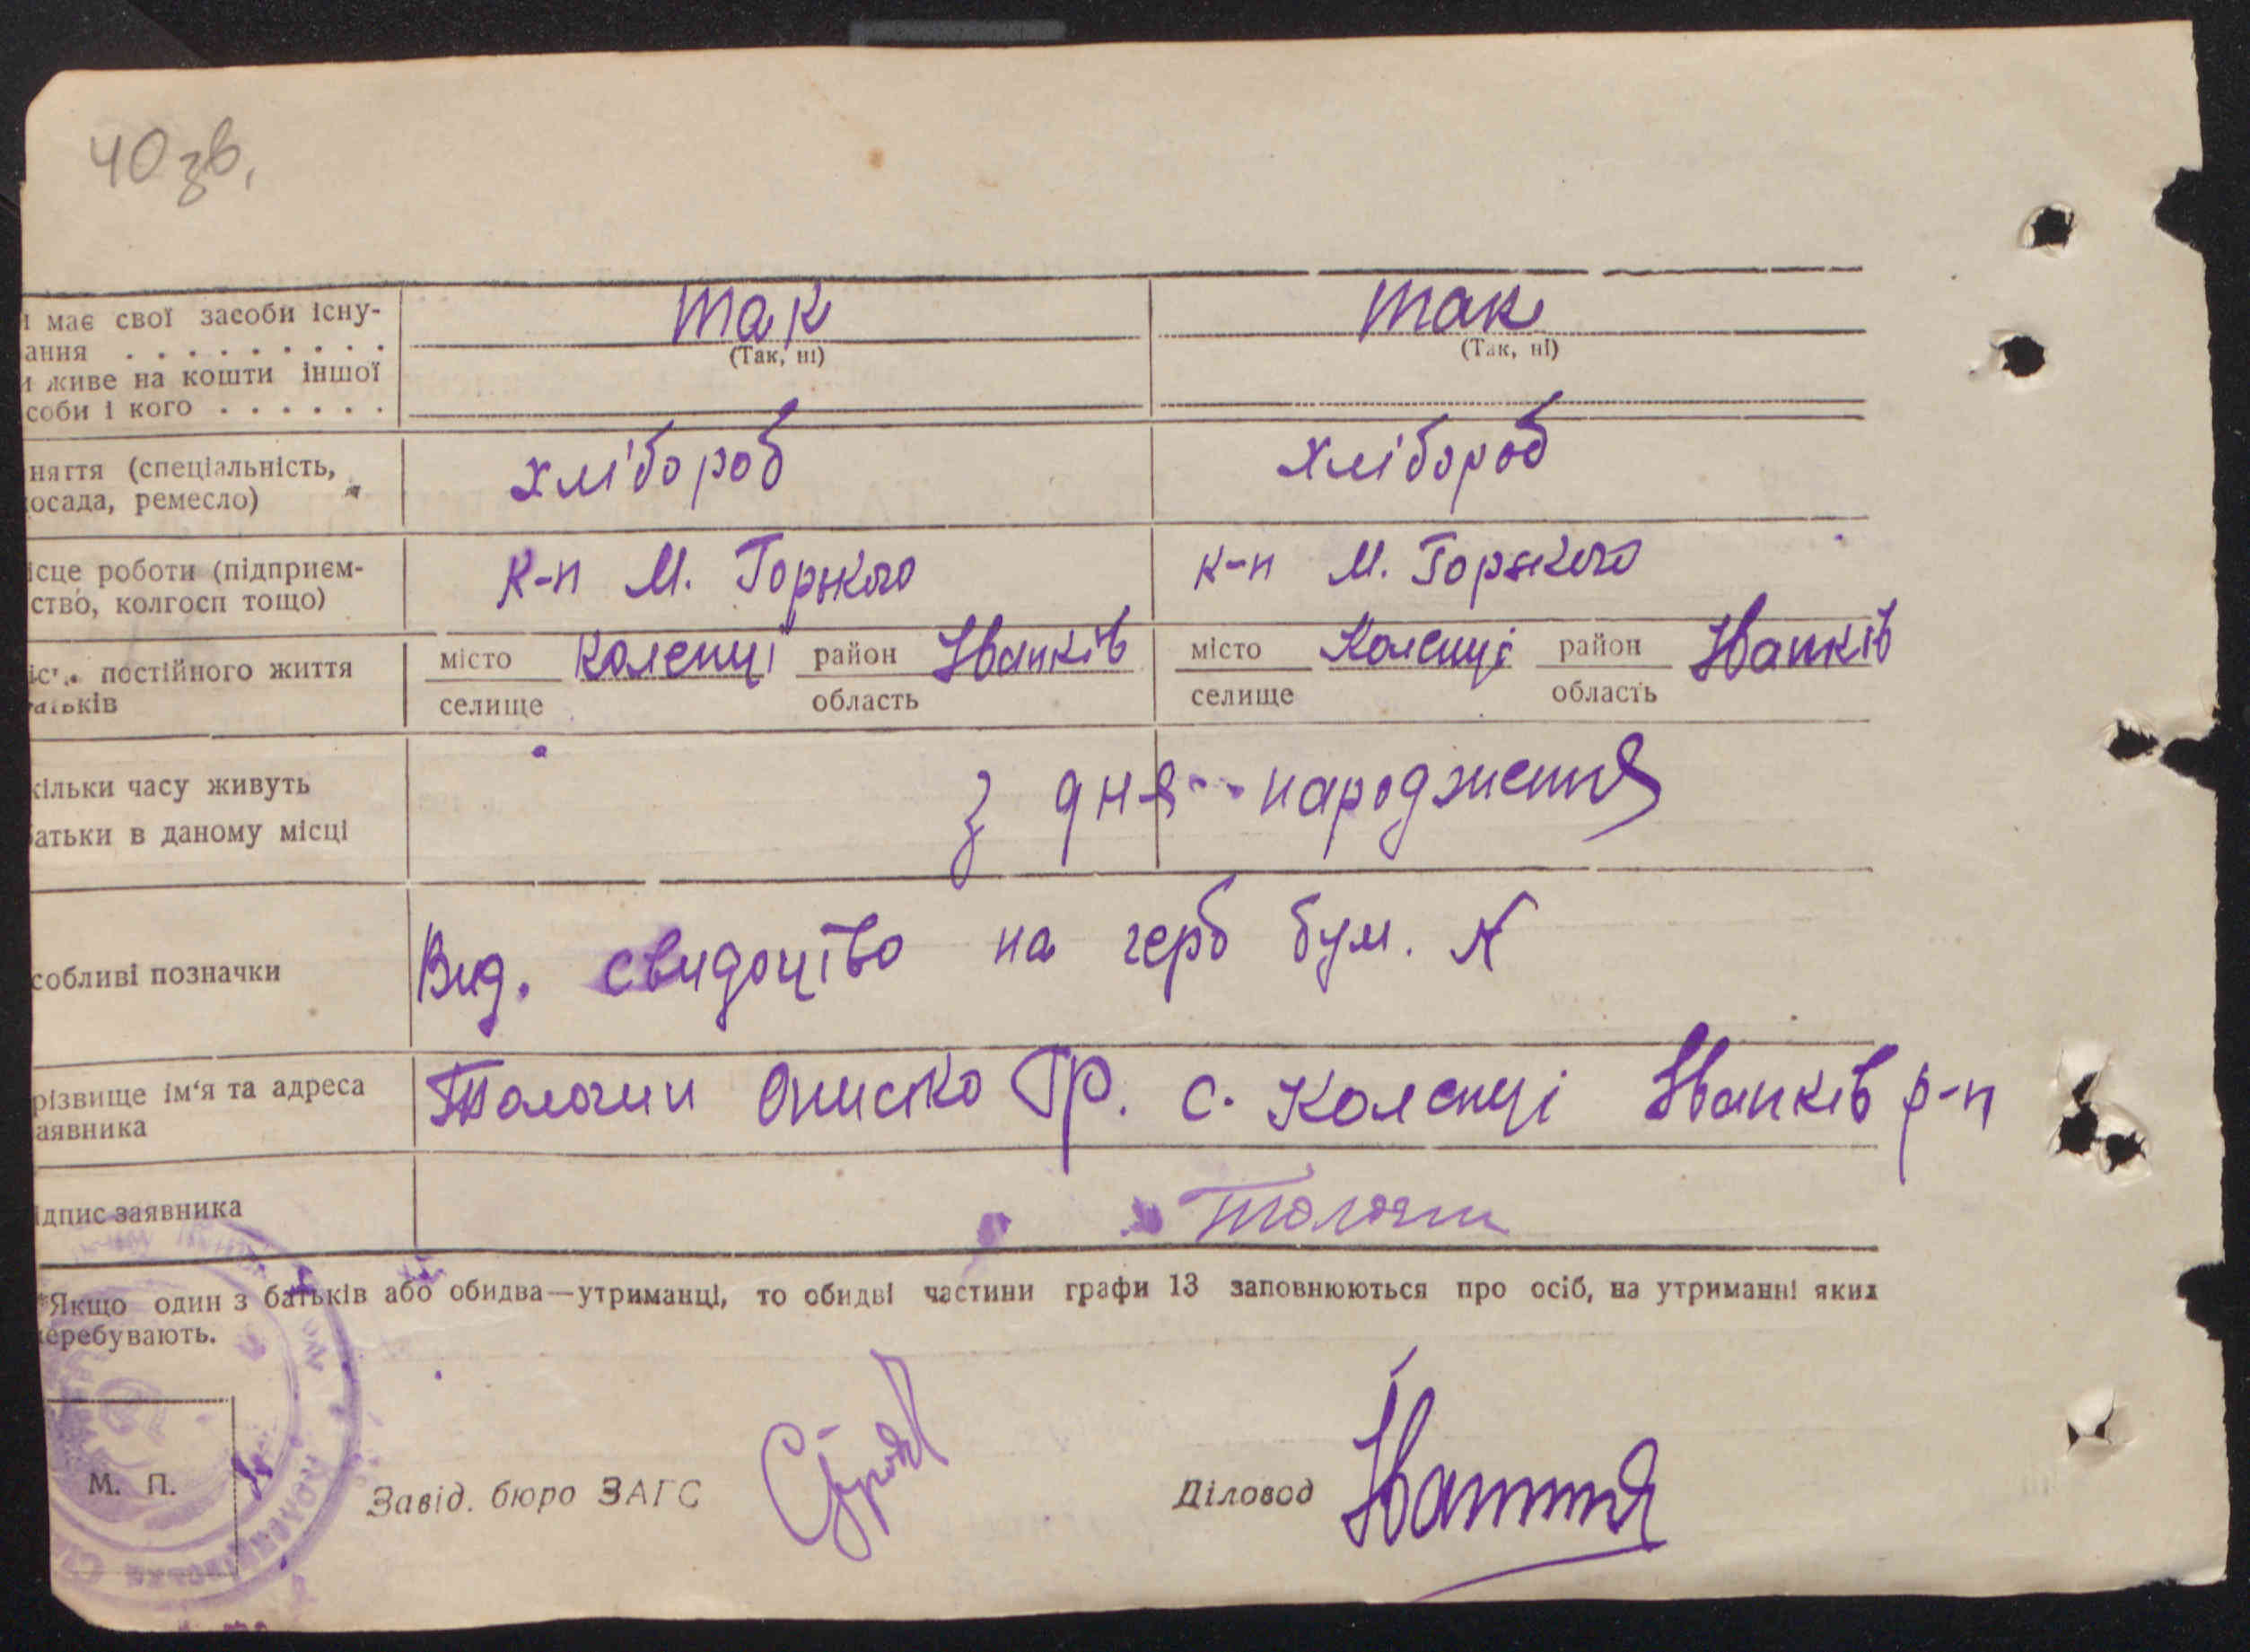 40 зв,
и має свої засоби існу-
ання . . . . . . . . .
и живе на кошти іншої
соби і кого . . . . . .
так
(Так, ні)
так
(Так, ні)
няття (спеціальність,
осада, ремесло)
хлібороб
хлібороб
ісце роботи (підприєм-
ство, колгосп тощо)
к-п М. Горького
к-п М. Горького
постійного життя
атьків
місто Коленці район Іванків
селище область
місто Коленці район Іванків
селище область
кільки часу живуть
батьки в даному місці
з дня народження
собливі позначки
Вид. свидоцтво на герб бум. №
різвище ім'я та адреса
аявника
Толочин Ониско Гр. с. Коленці Іванків р-н
ідпис заявника
Толочин
*Якщо один з батьків або обидва—утриманці, то обидві частини графи 13 заповнюються про осіб, на утриманні яких
перебувають.
М. П.
Завід. бюро ЗАГС
Діловод